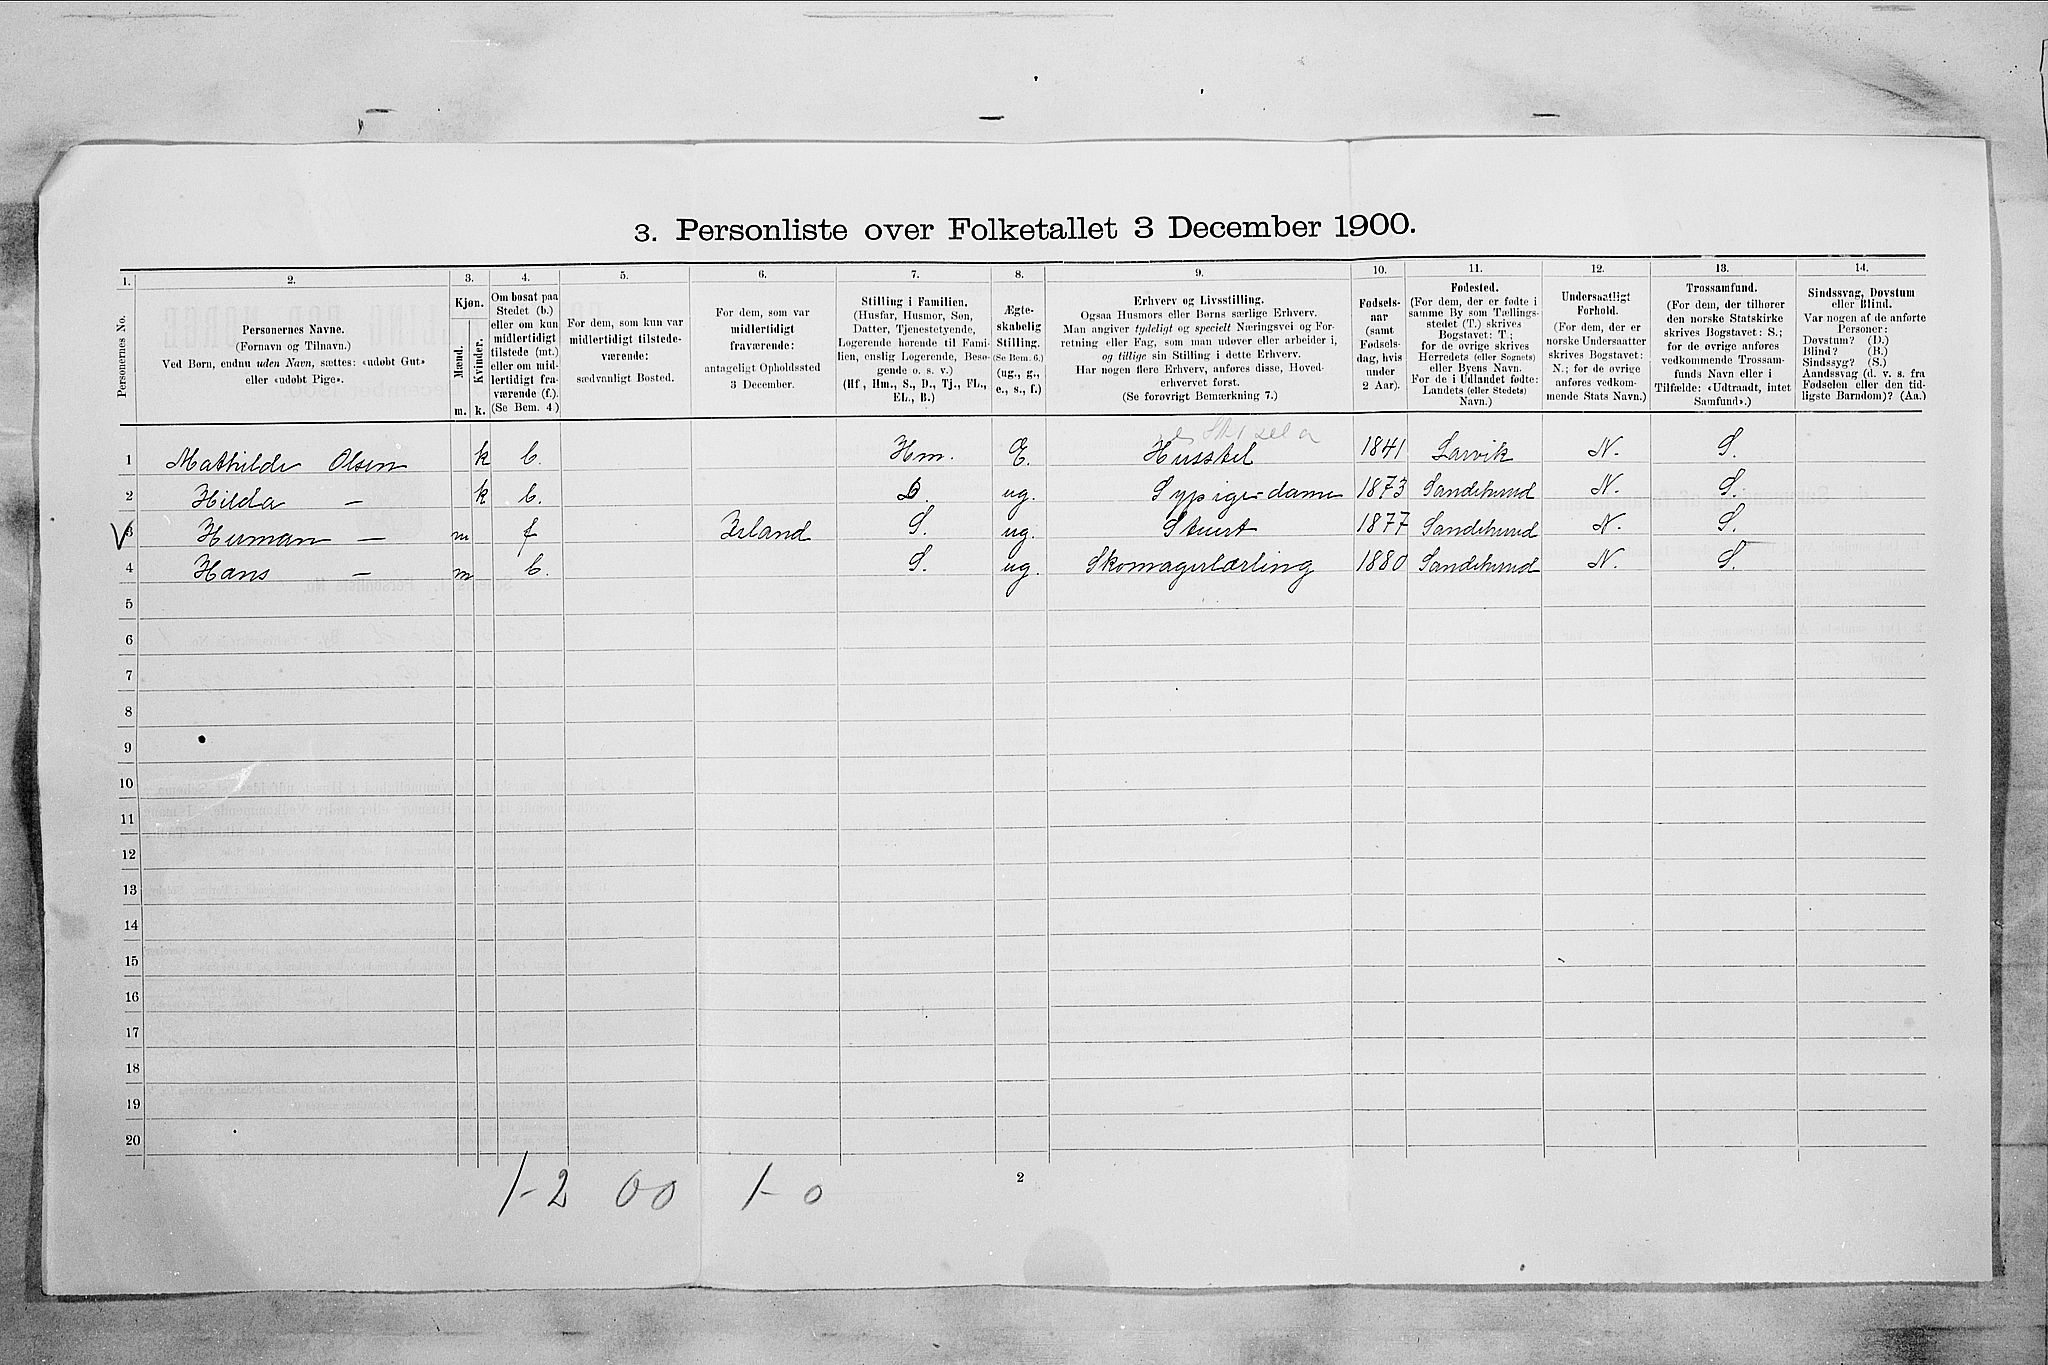 3. Personliste over Folketallet 3 December 1900.
1. 2. 3. 4. 5. 6. 7. 8. 9. 10. 11. 12. 13. 14.
Personernes No.
Personernes Navne.
(Fornavn og Tilnavn.)
Ved Børn, endnu uden Navn, sættes: «udøbt Gut»
eller «udøbt Pige».
Kjøn.
Mænd.
Kvinder.
m. k.
Om bosat paa
Stedet (b.)
eller om kun
midlertidigt
tilstede (mt.)
eller om mid-
lertidigt fra-
værende (f.)
(Se Bem. 4.)
For dem, som kun var
midlertidigt tilstede-
værende:
sædvanligt Bosted.
For dem, som var
midlertidigt
fraværende:
antageligt Opholdssted
3 December.
Stilling i Familien.
(Husfar, Husmor, Søn,
Datter, Tjenestetyende,
Logerende hørende til Fami-
lien, enslig Logerende, Besø-
gende o. s. v.)
(Hf., Hm., S., D., Tj., FL.,
EL., B.)
Ægte-
skabelig
Stilling.
(Se Bem. 6.)
(ug., g.,
e., s., f.)
Erhverv og Livsstilling.
Ogsaa Husmors eller Børns særlige Erhverv.
Man angiver tydeligt og specielt Næringsvei og For-
retning eller Fag, som man udøver eller arbeider i,
og tillige sin Stilling i dette Erhverv.
Har nogen flere Erhverv, anføres disse, Hoved-
erhvervet først.
(Se forøvrigt Bemærkning 7.)
Fødsels-
aar
(samt
Fødsels-
dag, hvis
under
2 Aar).
Fødested.
(For dem, der er fødte i
samme By som Tællings-
stedet (T.) skrives
Bogstavet: T.;
for de øvrige skrives
Herredets (eller Sognets)
eller Byens Navn.
For de i Udlandet fødte:
Landets (eller Stedets)
Navn.)
Undersaatligt
Forhold.
(For dem, der er
norske Undersaatter
skrives Bogstavet:
N.; for de øvrige
anføres vedkom-
mende Stats Navn.)
Trossamfund.
(For dem, der tilhører
den norske Statskirke
skrives Bogstavet: S.;
for de øvrige anføres
vedkommende Trossam-
funds Navn eller i
Tilfælde: «Udtraadt, intet
Samfund».)
Sindssvag, Døvstum
eller Blind.
Var nogen af de anførte
Personer:
Døvstum? (D.)
Blind? (B.)
Sindssyg? (S.)
Aandssvag (d. v. s. fra
Fødselen eller den tid-
ligste Barndom)? (Aa.)
1 Mathilde Olsen k b. Hm. E. Husstel 1841 Larvik N. S.
2 Hilda — k b. D. ug. Sypige - dame 1873 Sandesund N. S.
3 Herman — m f Irland S. ug. Stuert 1877 Sandesund N. S.
4 Hans — m b. S. ug. Skomagerlærling 1880 Sandesund N. S.
5
6
7
8
9
10
11
12
13
14
15
16
17
18
19
20
1-2 00 1-0
2